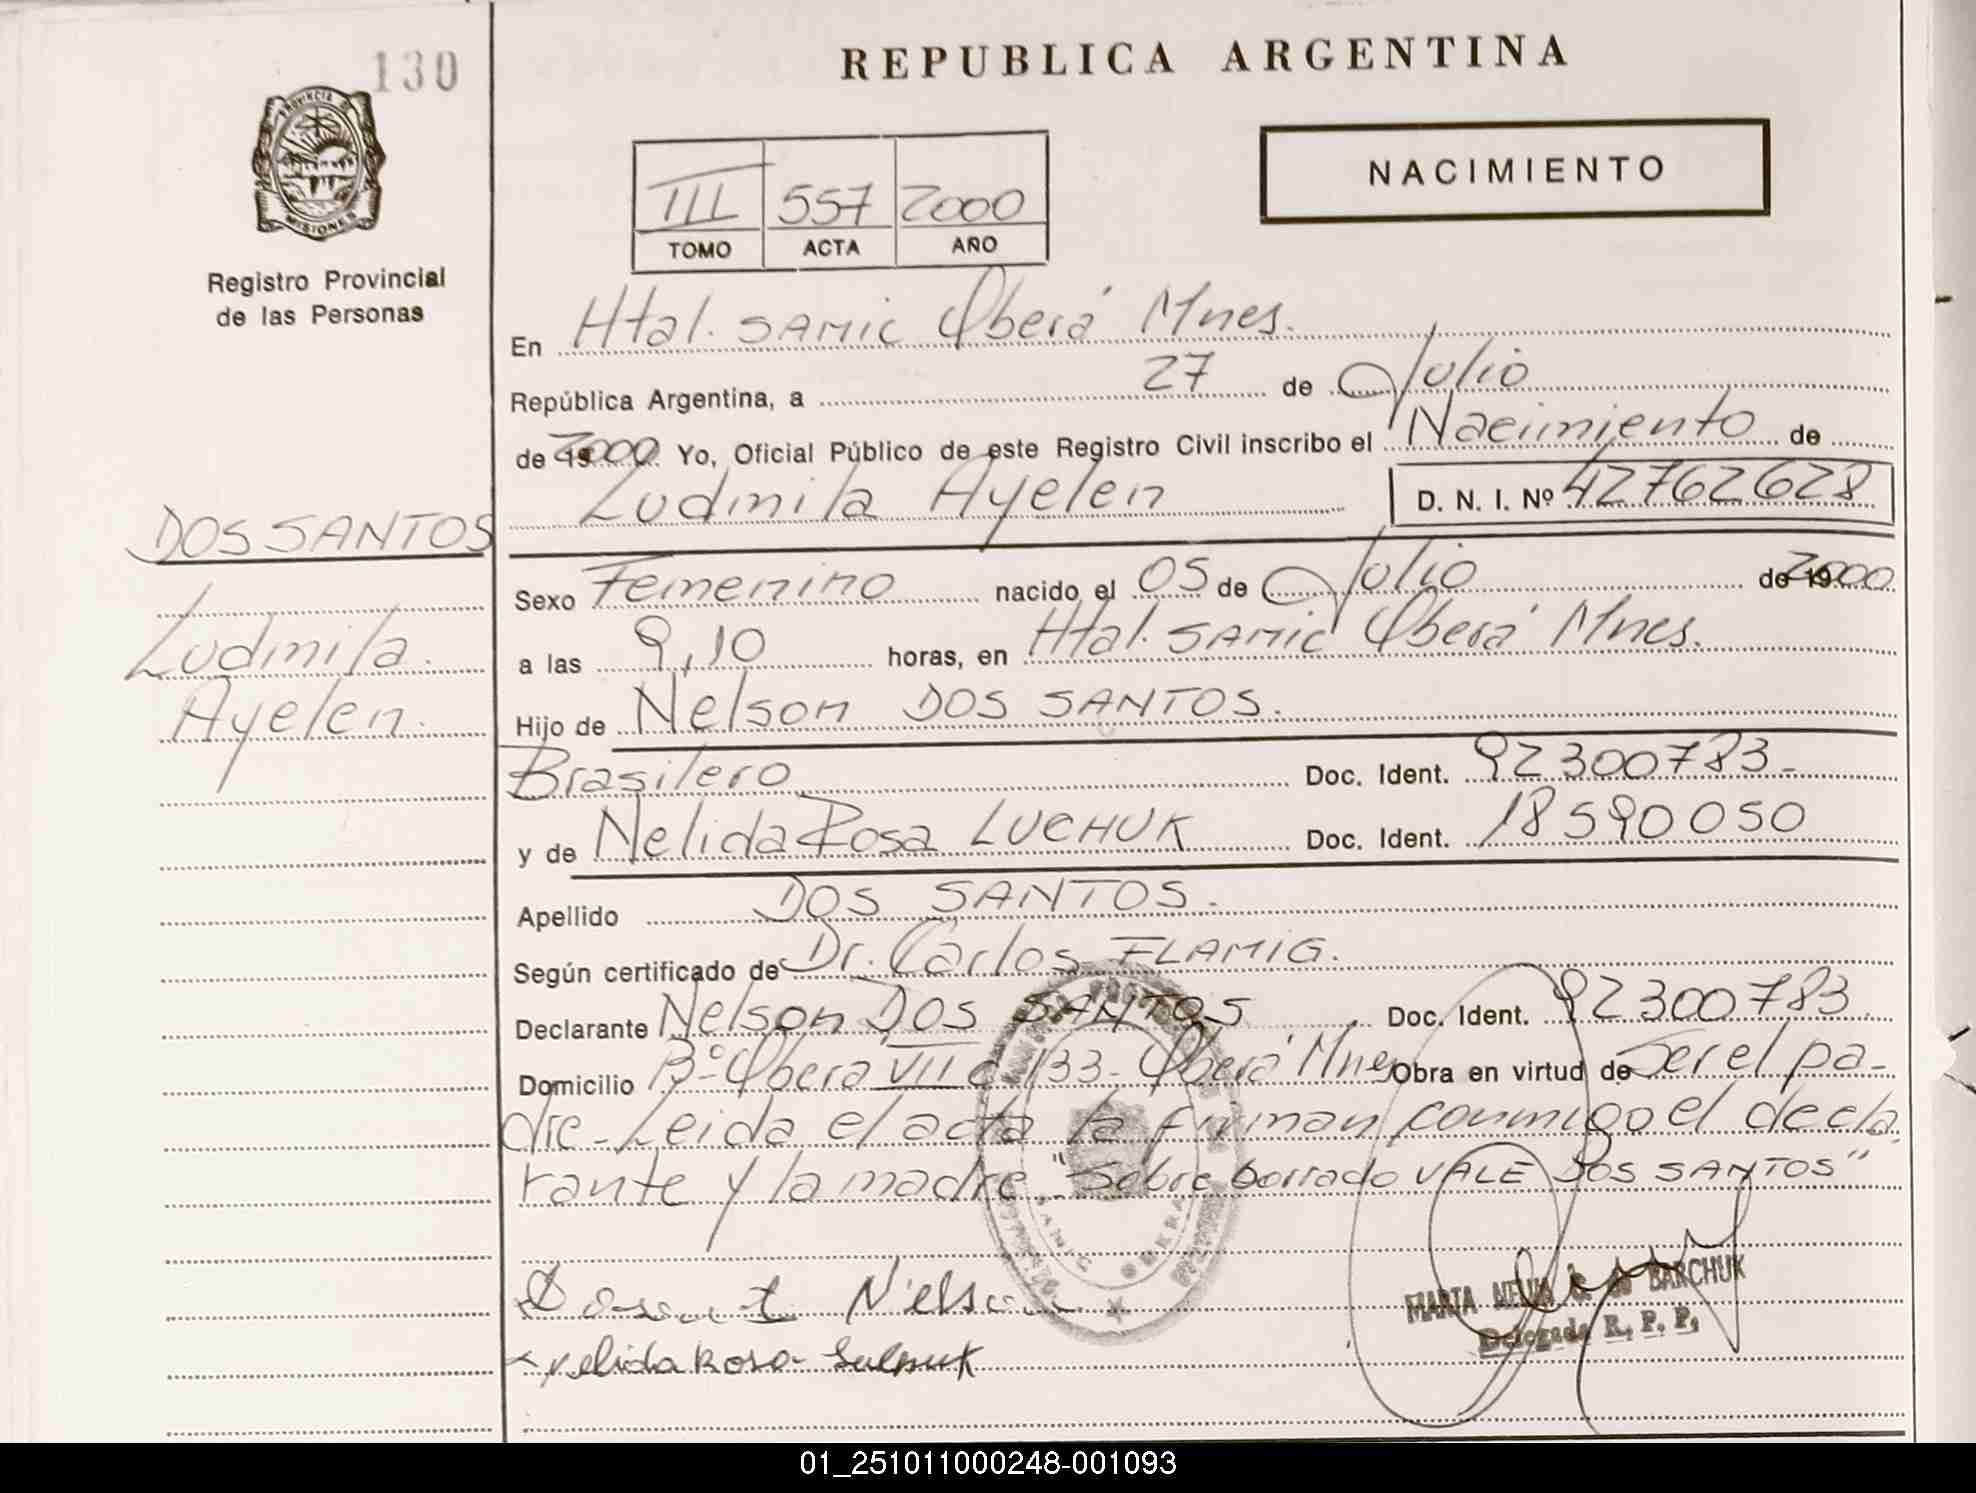 130
REPUBLICA ARGENTINA
PROVINCIA DE
MISIONES
Registro Provincial
de las Personas
III 557 2000
TOMO ACTA AÑO
NACIMIENTO
En Htal. SAMIC Oberá Mnes.
República Argentina, a 27 de Julio
de 2000 Yo, Oficial Público de este Registro Civil inscribo el Nacimiento de
Ludmila Ayelen D. N. I. Nº 42762628
DOS SANTOS
Ludmila
Ayelen.
Sexo Femenino nacido el 05 de Julio de 2000
a las 9,10 horas, en Htal. SAMIC Oberá Mnes.
Hijo de Nelson DOS SANTOS.
Brasilero Doc. Ident. 92300783-
y de Nelida Rosa LUCHUK Doc. Ident. 18590050
Apellido DOS SANTOS.
Según certificado de Dr. Carlos FLAMIG.
Declarante Nelson DOS SANTOS Doc. Ident. 92300783.
Domicilio Bº Oberá VII c 133- Oberá Mnes Obra en virtud de Ser el pa-
dre-Leida el acta la firman conmigo el decla
rante y la madre. "Sobre borrado VALE DOS SANTOS"
Nelson
Nelida Rosa
MARTA BARCHUK
Delegada R. P. P.
01_251011000248-001093